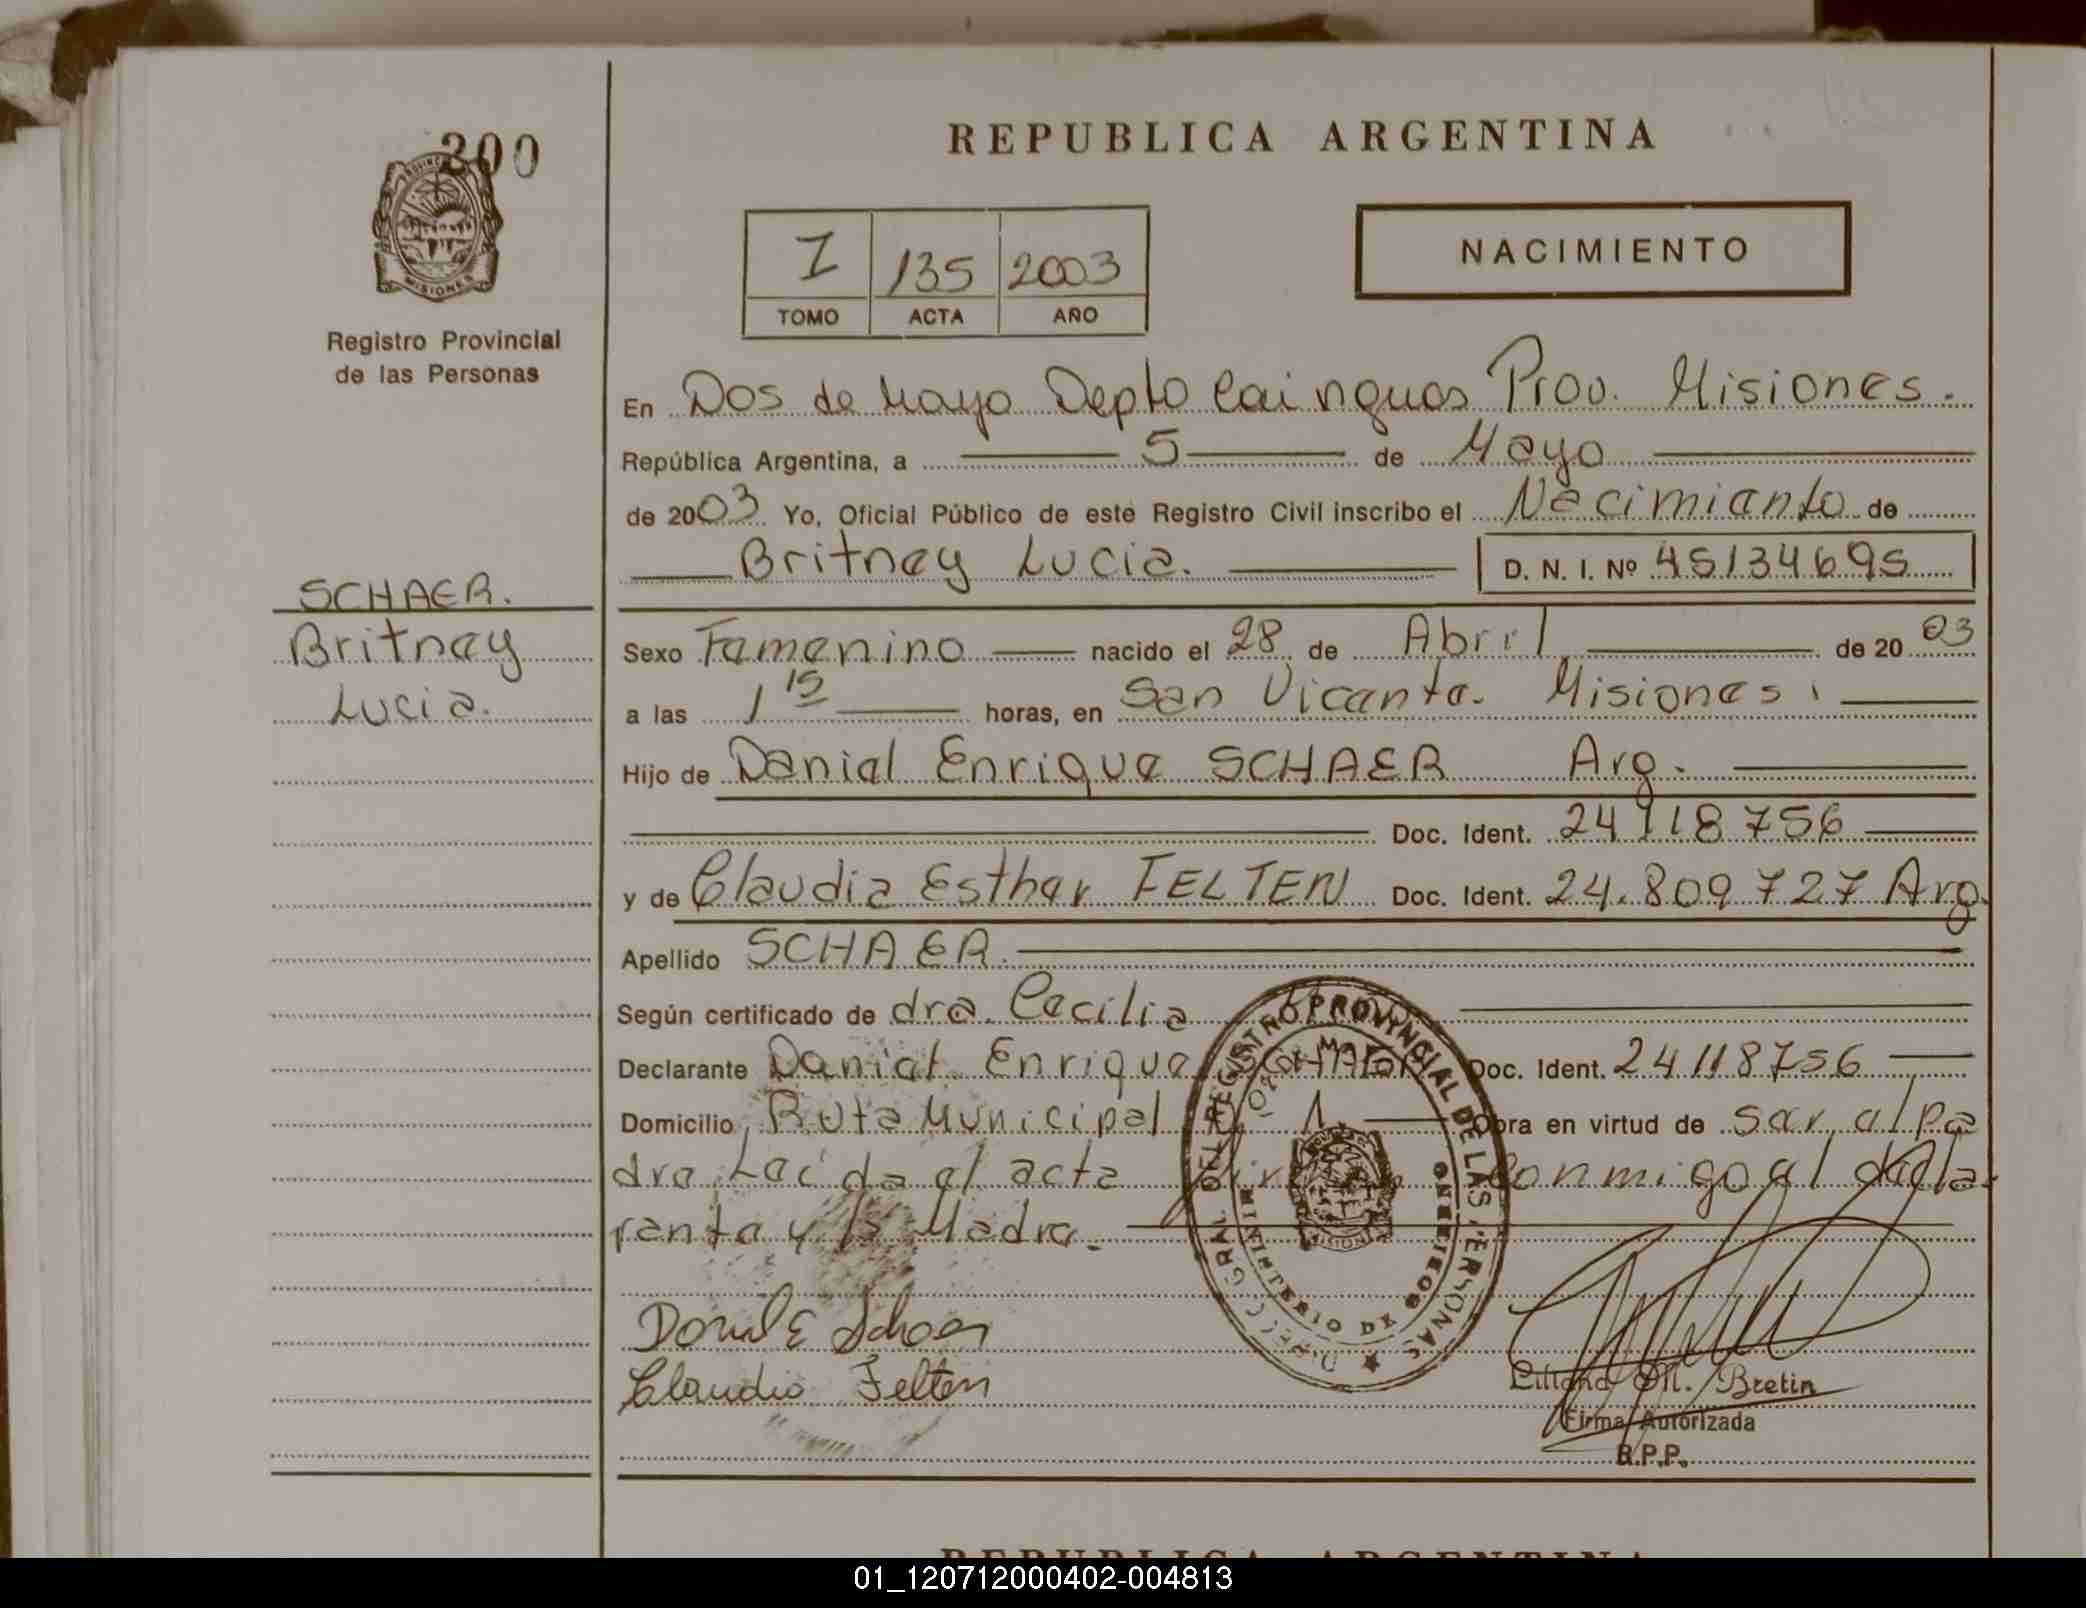 200
REPUBLICA ARGENTINA
PROVINC
MISIONES
Registro Provincial
de las Personas
I 135 2003
TOMO ACTA AÑO
NACIMIENTO
En Dos de Mayo Depto Cainguas Prov. Misiones.
República Argentina, a 5 de Mayo
de 2003 Yo, Oficial Público de este Registro Civil inscribo el Nacimiento de
Britney Lucia. D. N. I. Nº 45134695
SCHAER.
Britney
Lucia.
Sexo Femenino nacido el 28 de Abril de 2003
a las 1 15 horas, en San Vicente. Misiones.
Hijo de Daniel Enrique SCHAER Arg.
Doc. Ident. 24118756
y de Claudia Esther FELTEN Doc. Ident. 24.809727 Arg.
Apellido SCHAER.
Según certificado de dra. Cecilia
Declarante Daniel Enrique SCHAER Doc. Ident. 24118756
Domicilio Ruta Municipal 1 Obra en virtud de ser el pa
dre Leida el acta conmigo el decla-
rante y la Madre.
DIRECC. GRAL. DEL REGISTRO PROVINCIAL DE LAS PERSONAS
MINISTERIO DE GOBIERNO
MISIONES
Daniel E Schaer
Claudia Felten
Liliana M. Bretin
Firma Autorizada
R.P.P.
REPUBLICA ARGENTINA
01_120712000402-004813